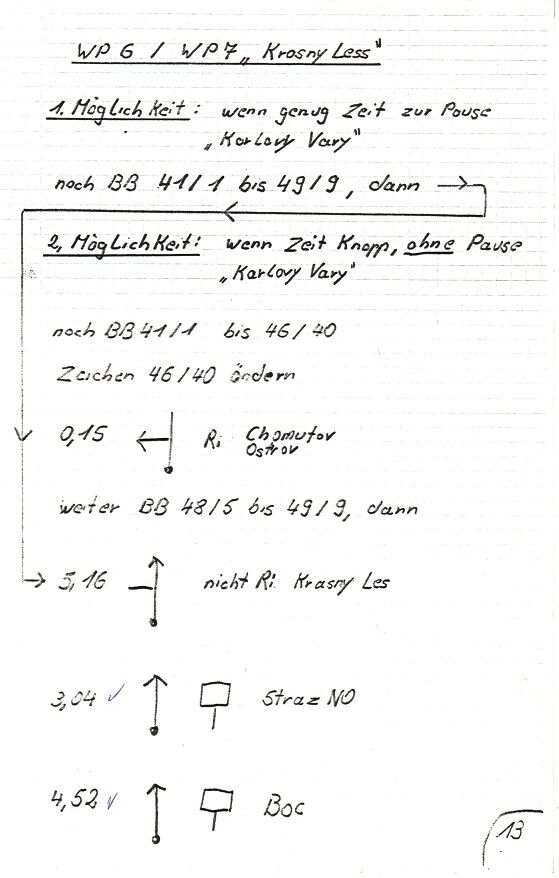 WP 6 / WP 7 „Krasny Less"
1. Möglichkeit: wenn genug Zeit zur Pause
„Karlovy Vary"
nach BB 41/1 bis 49/9, dann
2, Möglichkeit: wenn Zeit Knapp, ohne Pause
„Karlovy Vary"
nach BB 41/1 bis 46/40
Zeichen 46/40 ändern
0,15 Ri Chomutov
Ostrov
weiter BB 48/5 bis 49/9, dann
5,16 nicht Ri Krasny Les
3,04 Straz NO
4,52 Boc
13